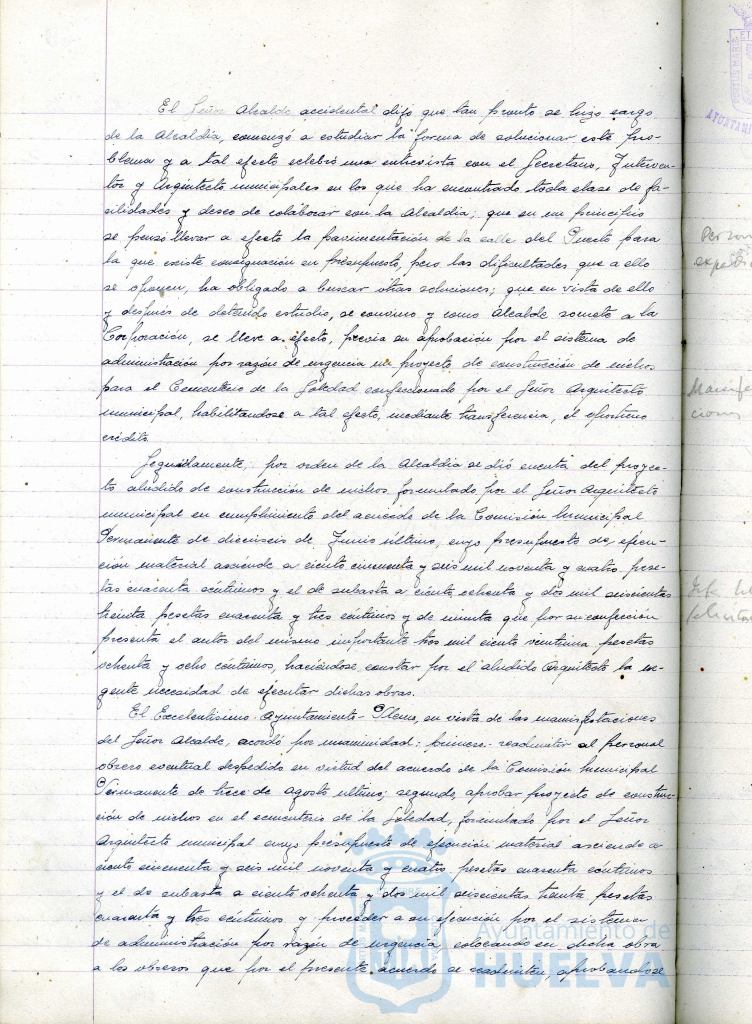 El Señor Alcalde accidental dijo que tan pronto se hizo cargo
de la Alcaldia, comenzó a estudiar la forma de solucionar este pro-
blema y a tal efecto celebró una entrevista con el Secretario, Interven-
tor y Arquitecto municipales en los que ha encontrado toda clase de fa-
cilidades y deseo de colaborar con la Alcaldia; que en un principio
se pensó llevar a efecto la pavimentación de la calle del Puerto para
la que existe consignación en presupuesto, pero las dificultades que a ello
se oponen, ha obligado a buscar otras soluciones; que en vista de ello
y después de detenido estudio, se convino y como Alcalde somete a la
Corporación, se lleve a efecto, previa su aprobación por el sistema de
administración por razón de urgencia un proyecto de construcción de nichos
para el Cementerio de la Soledad confeccionado por el Señor Arquitecto
municipal, habilitandose a tal efecto, mediante transferencia, el oportuno
crédito.
Seguidamente, por orden de la Alcaldia se dió cuenta del proyec-
to aludido de construcción de nichos formulado por el Señor Arquitecto
municipal en cumplimiento del acuerdo de la Comisión Municipal
Permanente de dieciseis de Junio último, cuyo presupuesto de ejecu-
ción material asciende a ciento cincuenta y seis mil noventa y cuatro pese-
tas cuarenta céntimos y el de subasta a ciento ochenta y dos mil seiscientas
treinta pesetas cuarenta y tres céntimos y de minuta que por su confección
presenta el autor del mismo importante tres mil ciento veintiuna pesetas
ochenta y ocho céntimos, haciéndose constar por el aludido Arquitecto la ur-
gente necesidad de ejecutar dichas obras.
El Excelentisimo Ayuntamiento-Pleno, en vista de las manifestaciones
del Señor Alcalde, acordó por unanimidad: primero- readmitir al personal
obrero eventual despedido en virtud del acuerdo de la Comisión Municipal
Permanente de trece de Agosto ultimo; segundo, aprobar proyecto de construc-
ción de nichos en el cementerio de la Soledad, formulado por el Señor
Arquitecto municipal cuyo presupuesto de ejecución material asciende a
ciento cincuenta y seis mil noventa y cuatro pesetas cuarenta céntimos
y el de subasta a ciento ochenta y dos mil seiscientas treinta pesetas
cuarenta y tres céntimos y proceder a su ejecución por el sistema
de administración por razón de urgencia, colocando en dicha obra
a los obreros que por el presente acuerdo se readmiten, aprobandose
Ayuntamiento de
HUELVA